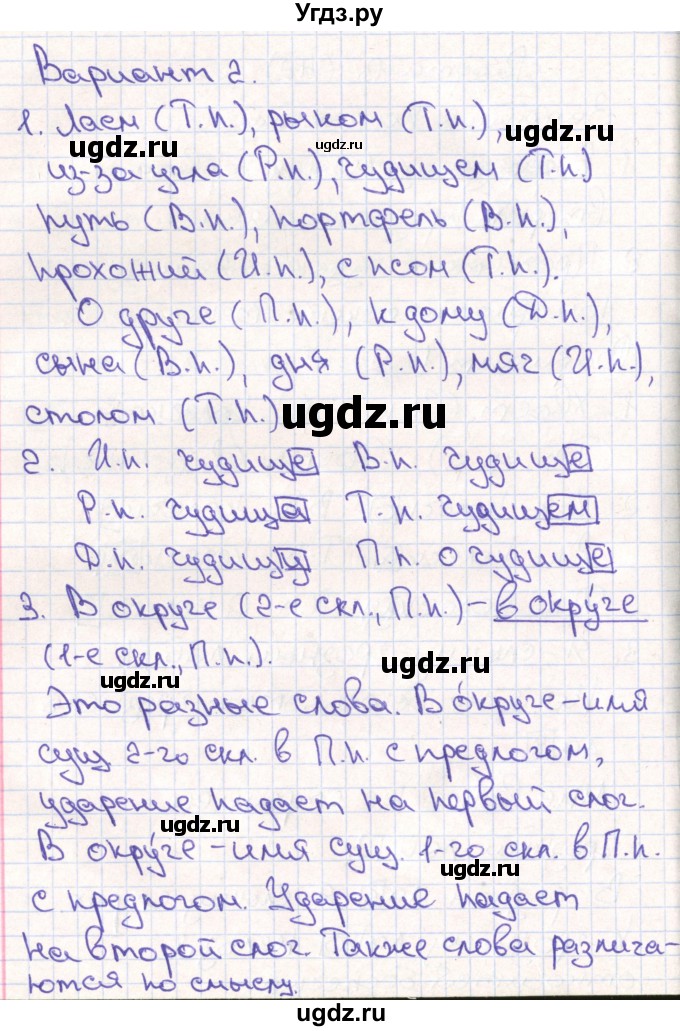 Угдз.ру
Вариант 2.
1. Лаем (Т.п.), рыком (Т.п.),
ugdz.ru ugdz.ru
из-за угла (Р.п.), чудищем (Т.п.)
путь (В.п.), портфель (В.п.),
прохожий (И.п.), с псом (Т.п.).
О друге (П.п.), к дому (Д.п.),
сына (В.п.), дня (Р.п.), мяч (И.п.),
столом (Т.п.) ugdz.ru
2. И.п. чудище В.п. чудище
Р.п. чудища Т.п. чудищем
Д.п. чудищу П.п. о чудище
3. В округе (2-е скл., П.п.) – в окру́ге
(1-е скл., П.п.). ugdz.ru
ugdz.ru
Это разные слова. В о́круге – имя
сущ. 2-го скл. в П.п. с предлогом,
ударение падает на первый слог.
ugdz.ru
В окру́ге – имя сущ. 1-го скл. в П.п.
ugdz.ru
с предлогом. Ударение падает
на второй слог. Также слова различа-
ются по смыслу.
ugdz.ru